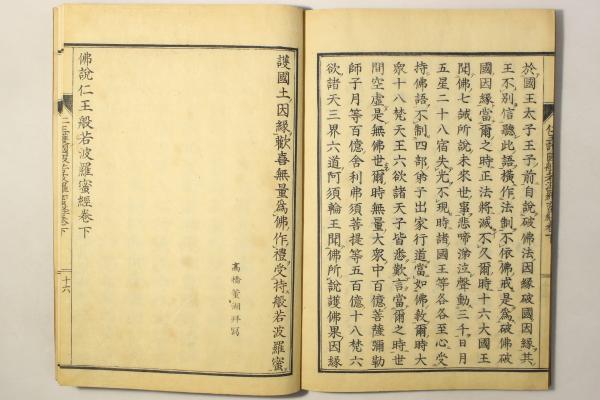 於國王太子王子前自說破佛法因緣破國因緣其
王不別信聽此語橫作法制不依佛戒是爲破佛破
國因緣當爾之時正法將滅不久爾時十六大國王
聞佛七誡所說未來世事悲啼涕泣聲動三千日月
五星二十八宿失光不現時諸國王等各各至心受
持佛語不制四部弟子出家行道當如佛教爾時大
衆十八梵天王六欲諸天子皆悉歎言當爾之時世
間空虛是無佛世爾時無量大衆中百億菩薩彌勒
師子月等百億舍利弗須菩提等五百億十八梵六
欲諸天三界六道阿須輪王聞佛所說護佛果因緣
護國土因緣歡喜無量爲佛作禮受持般若波羅蜜
佛說仁王般若波羅蜜經卷下
十六